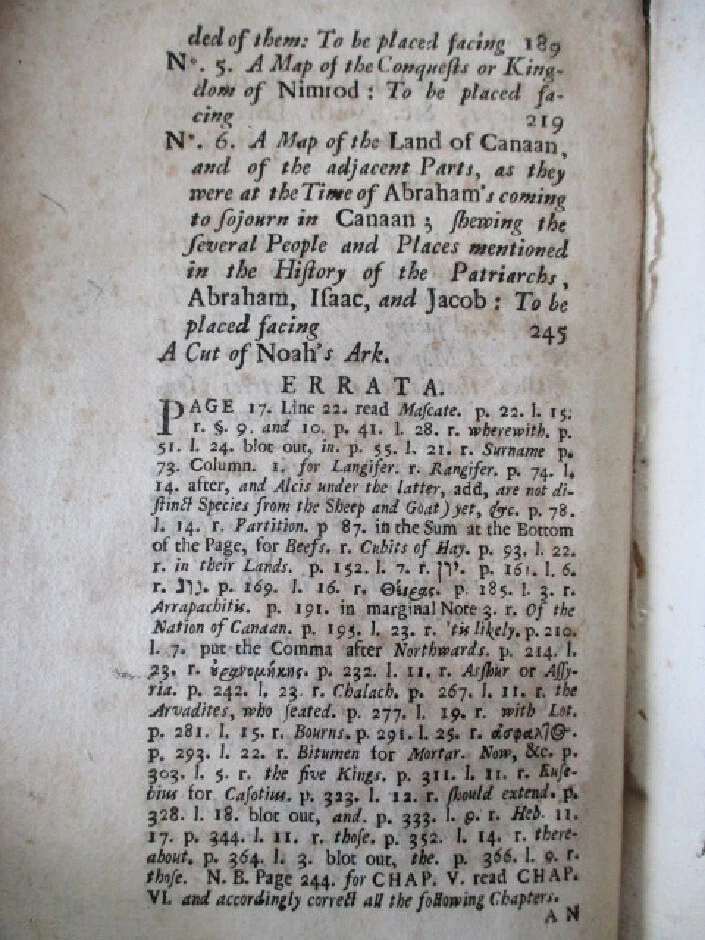 ded of them: To be placed facing 189
Nº. 5. A Map of the Conqueſts or King-
dom of Nimrod : To be placed fa-
cing 219
Nº. 6. A Map of the Land of Canaan,
and of the adjacent Parts, as they
were at the Time of Abraham's coming
to ſojourn in Canaan ; ſhewing the
ſeveral People and Places mentioned
in the Hiſtory of the Patriarchs,
Abraham, Iſaac, and Jacob : To be
placed facing 245
A Cut of Noah's Ark.
ERRATA.
PAGE 17. Line 22. read Maſcate. p. 22. l. 15.
r. §. 9. and 10. p. 41. l. 28. r. wherewith. p.
51. l. 24. blot out, in. p. 55. l. 21. r. Surname p.
73. Column. 1. for Langifer. r. Rangifer. p. 74. l.
14. after, and Alcis under the latter, add, are not di-
ſtinct Species from the Sheep and Goat) yet, &c. p. 78.
l. 14. r. Partition. p 87. in the Sum at the Bottom
of the Page, for Beefs. r. Cubits of Hay. p. 93. l. 22.
r. in their Lands. p. 152. l. 7. r. יון. p. 161. l. 6.
r. p. 169. l. 16. r. Θείρας. p. 185. l. 3. r.
Arrapachitis. p. 191. in marginal Note 3. r. Of the
Nation of Canaan. p. 195. l. 23. r. 'tis likely. p. 210.
l. 7. put the Comma after Northwards. p. 214. l.
23. r. ὐρανομήκης. p. 232. l. 11. r. Asſhur or Aſſy-
ria. p. 242. l. 23. r. Chalach. p. 267. l. 11. r. the
Arvadites, who ſeated. p. 277. l. 19. r. with Lot.
p. 281. l. 15. r. Bourns. p. 291. l. 25. r.
p. 293. l. 22. r. Bitumen for Mortar. Now, &c. p.
303. l. 5. r. the five Kings. p. 311. l. 11. r. Euſe-
bius for Caſotius. p. 323. l. 12. r. ſhould extend. p.
328. l. 18. blot out, and. p. 333. l. 9. r. Heb. 11.
17. p. 344. l. 11. r. thoſe. p. 352. l. 14. r. there-
about. p. 364. l. 3. blot out, the. p. 366. l. 9. r.
thoſe. N. B. Page 244. for CHAP. V. read CHAP.
VI. and accordingly correct all the following Chapters.
AN